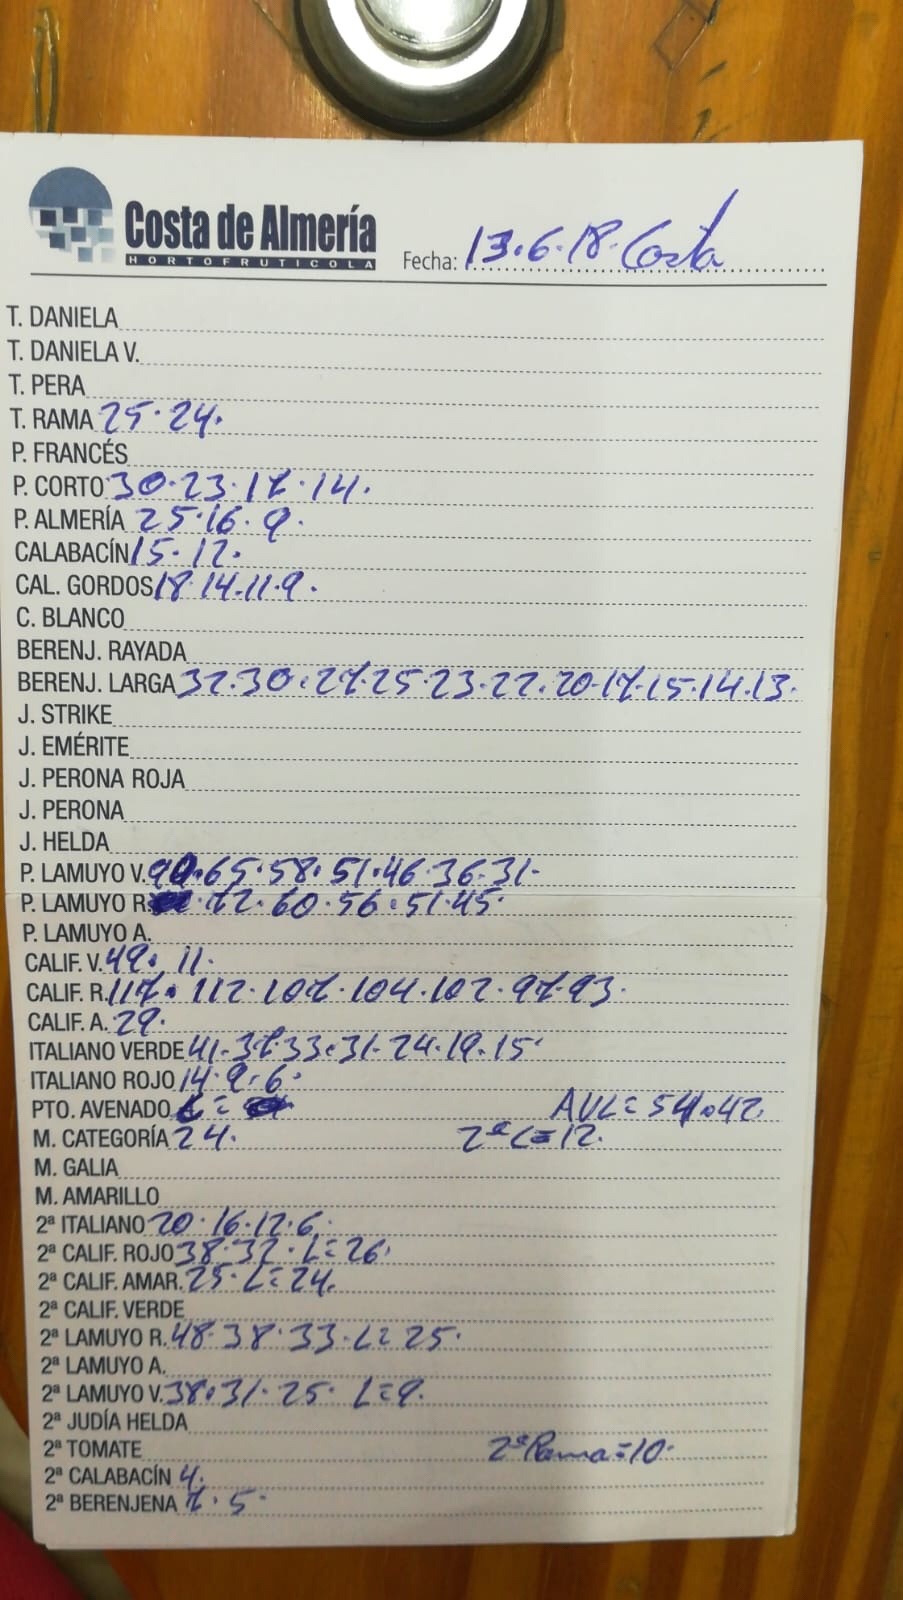 Costa de Almería
HORTOFRUTICOLA
Fecha: 13.6.18. Costa
T. DANIELA
T. DANIELA V.
T. PERA
T. RAMA 25.24.
P. FRANCÉS
P. CORTO 30.23.17.14.
P. ALMERÍA 25.16.9.
CALABACÍN 15.12.
CAL. GORDOS 18.14.11.9.
C. BLANCO
BERENJ. RAYADA
BERENJ. LARGA 32.30.27.25.23.22.20.17.15.14.13.
J. STRIKE
J. EMÉRITE
J. PERONA ROJA
J. PERONA
J. HELDA
P. LAMUYO V. 90.65.58.51.46.36.31.
P. LAMUYO R. 72.60.56.51.45.
P. LAMUYO A.
CALIF. V. 49. 11.
CALIF. R. 117.112.107.104.102.97.93.
CALIF. A. 29.
ITALIANO VERDE 41.37.33.31.24.19.15.
ITALIANO ROJO 14.9.6.
PTO. AVENADO AVL=54.42.
M. CATEGORÍA 24. 2ªL=12.
M. GALIA
M. AMARILLO
2ª ITALIANO 20.16.12.6.
2ª CALIF. ROJO 38.32. L=26.
2ª CALIF. AMAR. 25. L=24.
2ª CALIF. VERDE
2ª LAMUYO R. 48.38.33. L=25.
2ª LAMUYO A.
2ª LAMUYO V. 38.31.25. L=9.
2ª JUDÍA HELDA
2ª TOMATE 2ª Rama=10.
2ª CALABACÍN 4.
2ª BERENJENA 7.5.